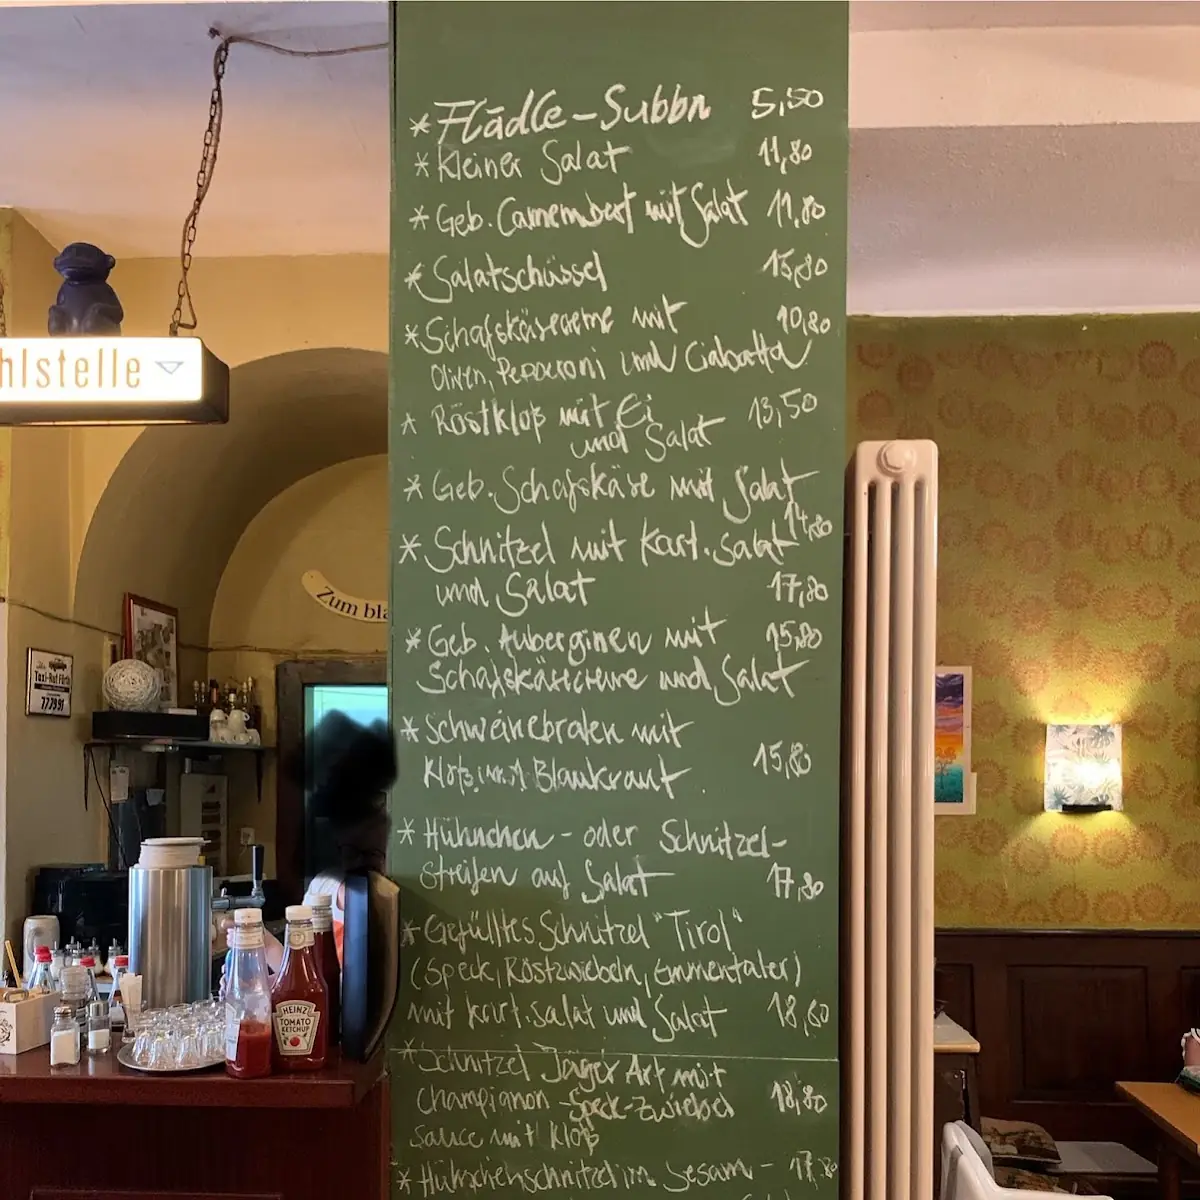 * Flädle-Subbn 5,50
* Kleiner Salat 11,80
* Geb. Camembert mit Salat 11,80
* Salatschüssel 15,80
* Schafskäsecreme mit 10,80
Oliven, Pepperoni und Ciabatta
* Röstkloß mit Ei 13,50
und Salat
* Geb. Schafskäse mit Salat
14,80
* Schnitzel mit Kart. Salat
und Salat 17,80
* Geb. Auberginen mit 15,80
Schafskäsecreme und Salat
* Schweinebraten mit
Kloß und Blaukraut 15,80
* Hühnchen - oder Schnitzel-
streifen auf Salat 17,80
* Gefülltes Schnitzel "Tirol"
(Speck, Röstzwiebeln, Emmentaler)
mit Kart. salat und Salat 18,80
* Schnitzel Jäger Art mit
Champignon-Speck-Zwiebel 18,80
sauce mit Kloß
* Hühnchenschnitzel im Sesam- 17,80
hlstelle
Zum bla
Taxi-Ruf Fürth
777991
HEINZ
TOMATO
KETCHUP